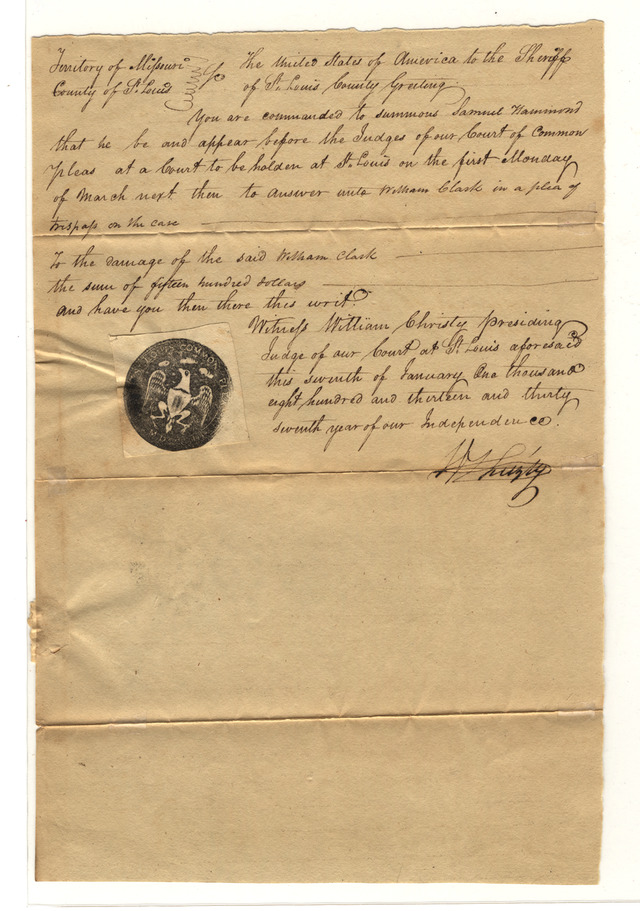 Territory of Missouri
County of St. Louis
The United States of America to the Sheriff
of St. Louis County Greeting.
You are commanded to summons Samuel Hammond
that he be and appear before the Judges of our Court of Common
pleas at a Court to be holden at St. Louis on the first Monday
of March next then to answer unto William Clark in a plea of
trespass on the case
To the damage of the said William Clark
the sum of fifteen hundred dollars
and have you then there this writ.
Witness William Christy presiding
Judge of our Court at St. Louis aforesaid
this seventh of January One thousand
eight hundred and thirteen and thirty
seventh year of our Independence.
COMMON
Wm Christy